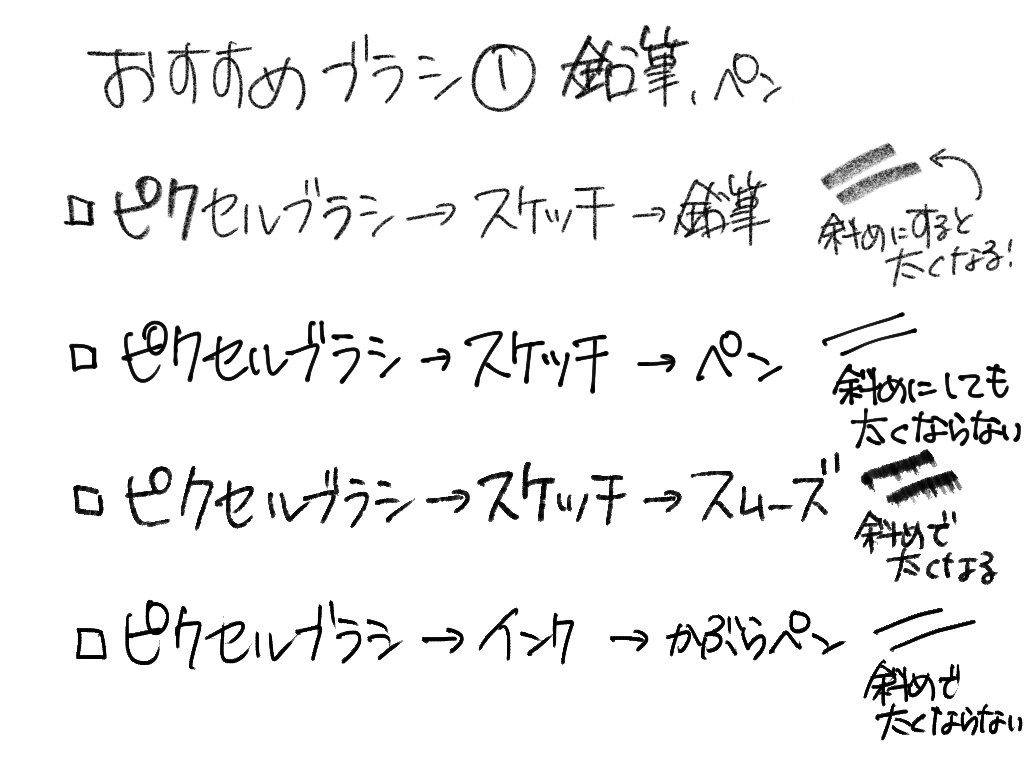 おすすめブラシ① 鉛筆、ペン
□ ピクセルブラシ→スケッチ→鉛筆
斜めにすると
太くなる!
□ ピクセルブラシ→スケッチ→ペン
斜めにしても
太くならない
□ ピクセルブラシ→スケッチ→スムーズ
斜めで
太くなる
□ ピクセルブラシ→インク→かぶらペン
斜めで
太くならない